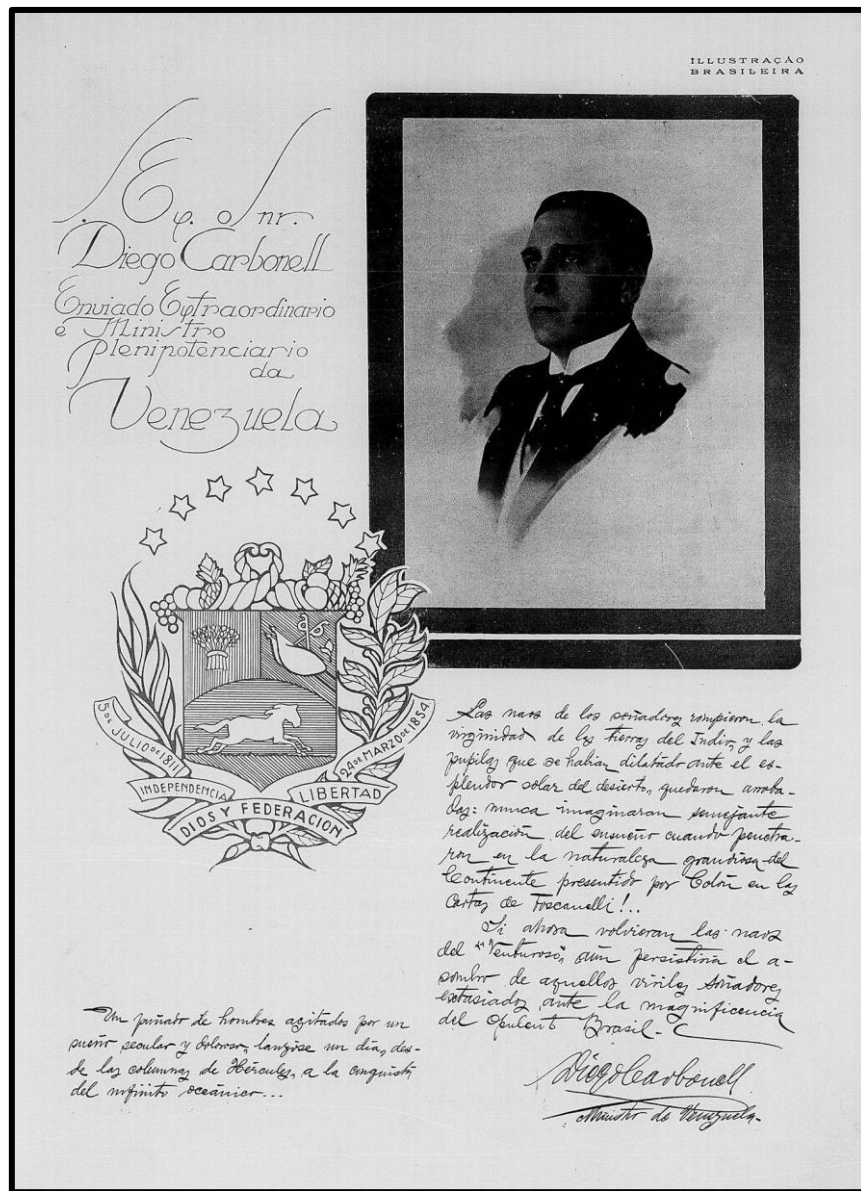 ILLUSTRAÇÃO
BRASILEIRA
S. Ex. o Snr.
Diego Carbonell
Enviado Extraordinario
e Ministro
Plenipotenciario
da
Venezuela
5 DE JULIO DE 1811
24 DE MARZO DE 1854
INDEPENDENCIA
LIBERTAD
DIOS Y FEDERACION
Un puñado de hombres agitados por un
sueño secular y doloroso, lanzóse un día, des-
de las columnas de Hércules, a la conquista
del infinito oceánico...
Las naos de los soñadores rompieron la
virginidad de las tierras del Indio, y las
pupilas que se habían dilatado ante el es-
plendor solar del desierto, quedaron arroba-
das: nunca imaginaron semejante
realización del ensueño cuando penetra-
ron en la naturaleza grandiosa del
Continente presentido por Colón en las
Cartas de Toscanelli!...
Si ahora volvieran las naos
del "Venturoso", aún persistiría el a-
sombro de aquellos viriles soñadores
extasiados ante la magnificencia
del opulento Brasil.-
Diego Carbonell
Ministro de Venezuela.